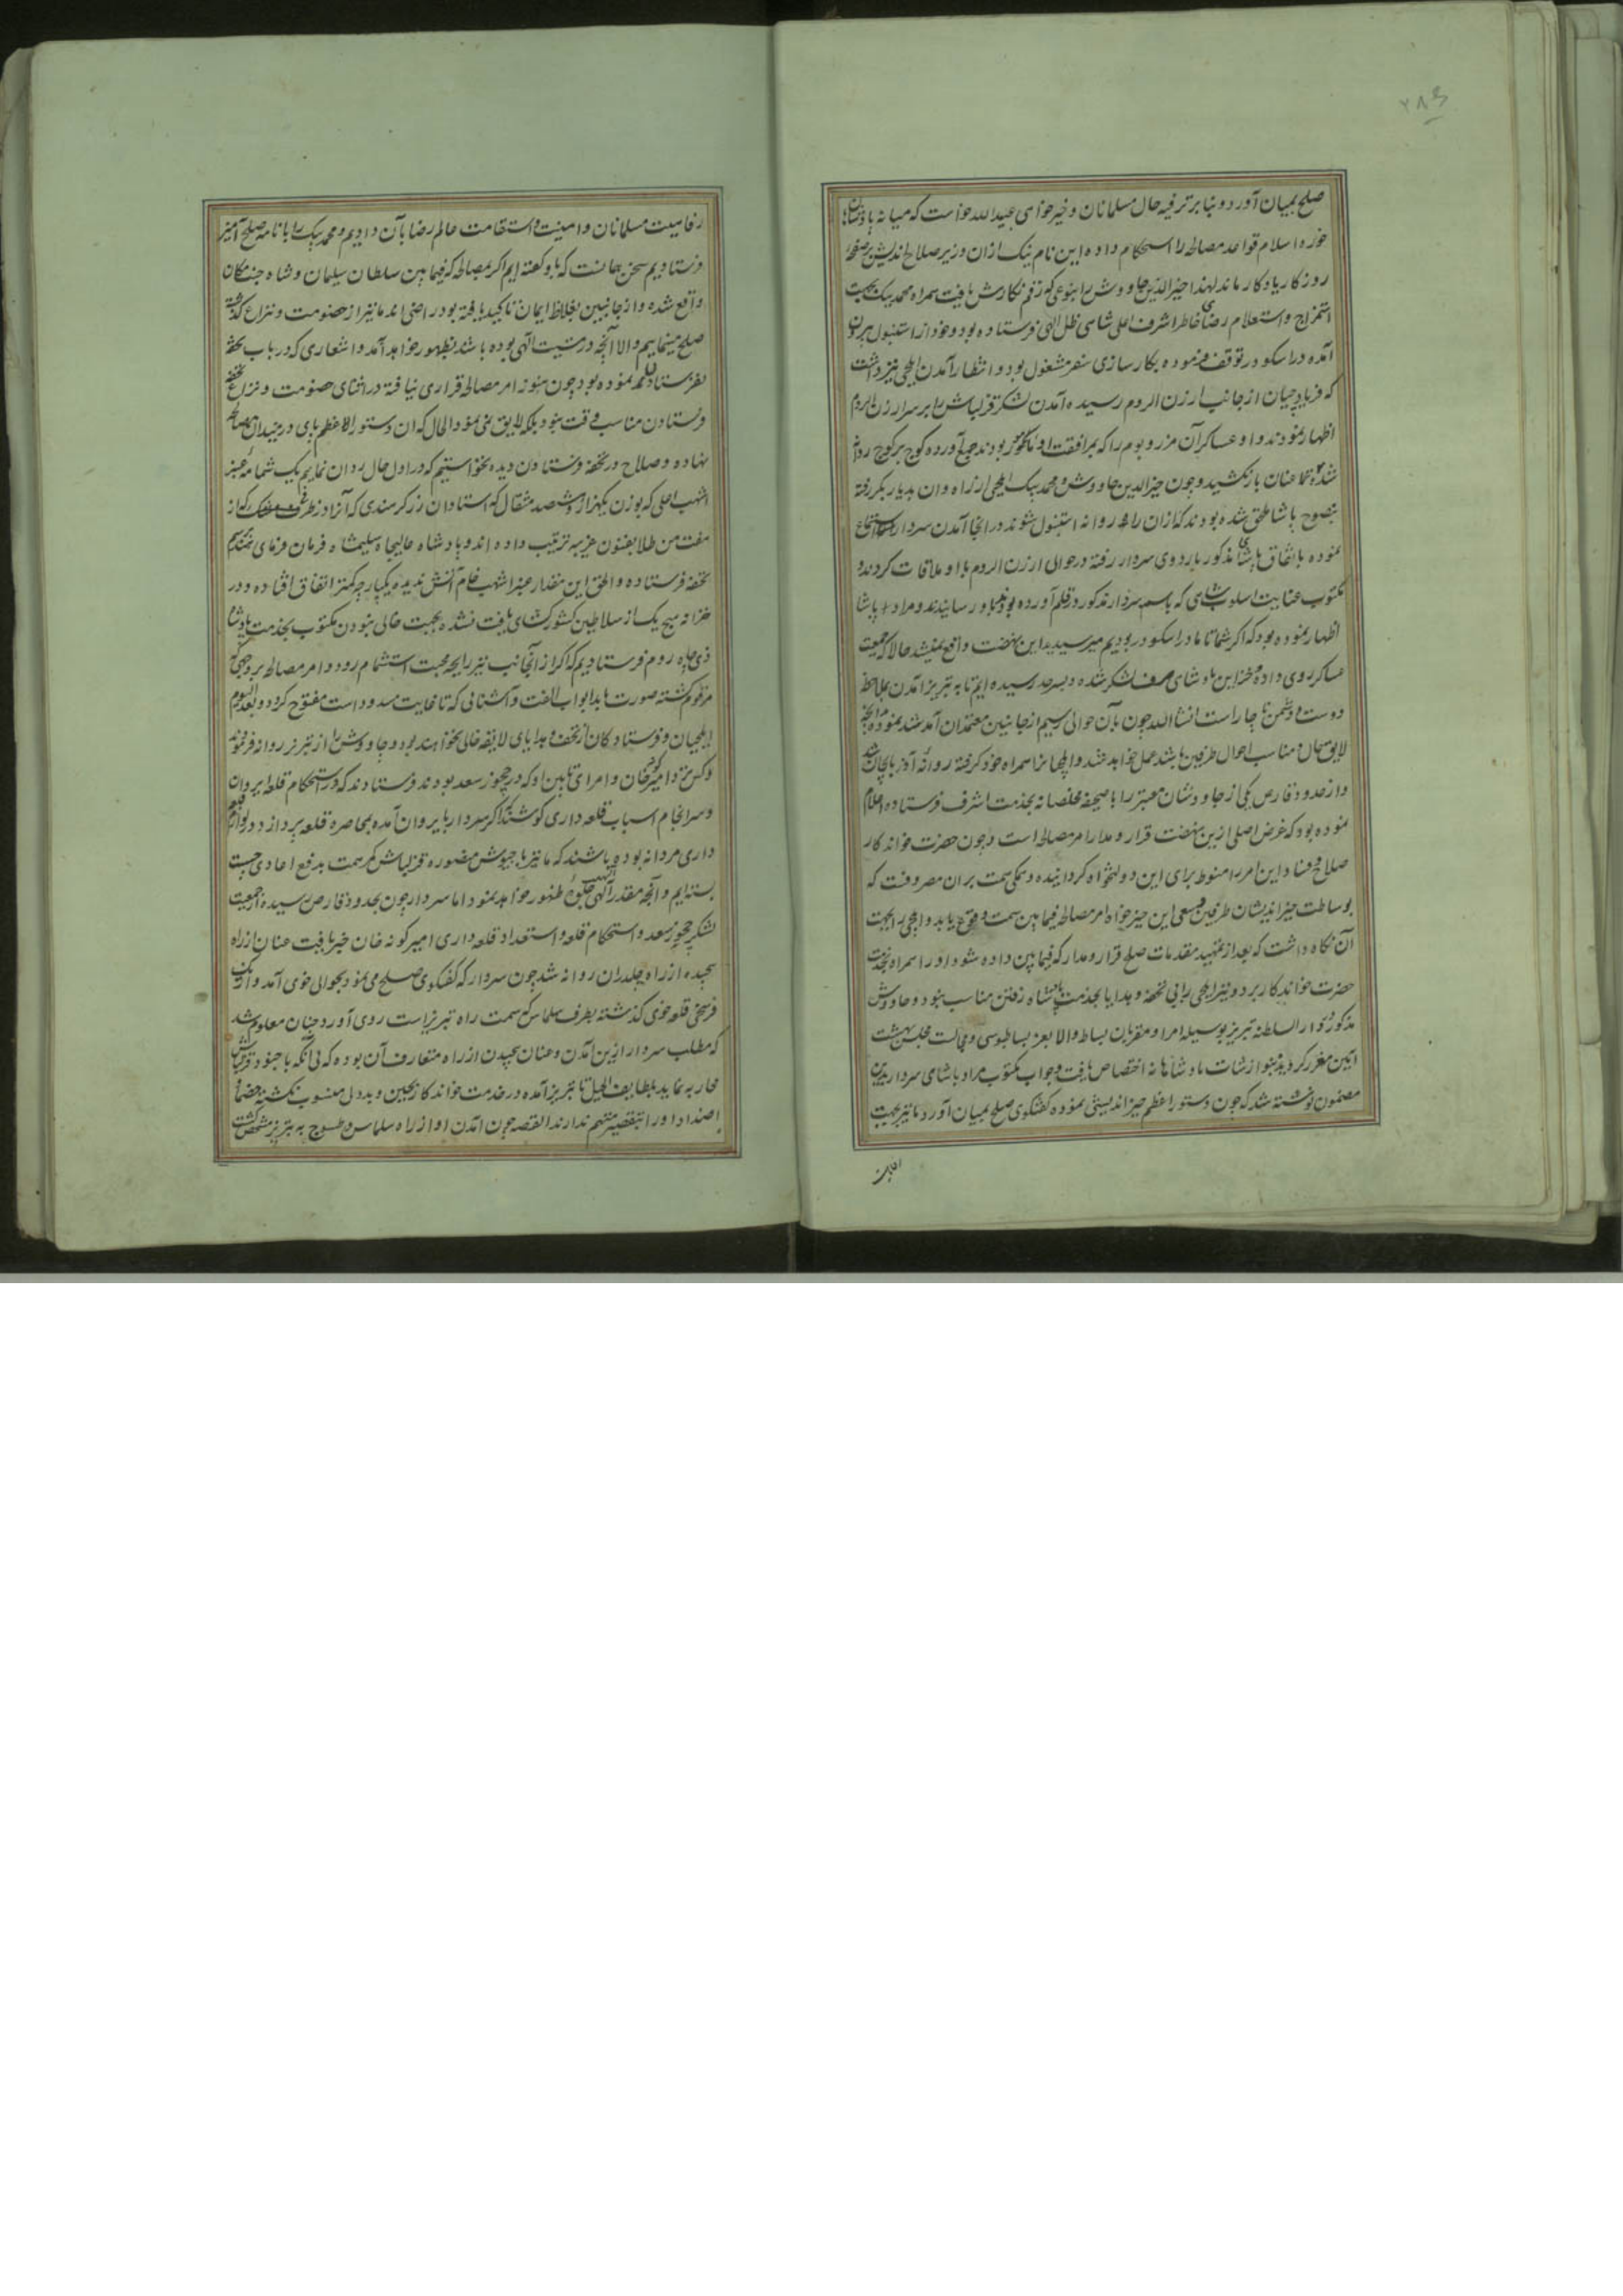 ۲۸۶
صلح بمیان آورد و بنا بر ترفیه حال مسلمانان و خیرخواهی عبیدالله خواست که میانه پادشاهان
حوزه اسلام قواعد مصالحه را استحکام داده این نام نیک ازان وزیر صلاح اندیش بر صفحه
روزکار یادکار ماند لهذا خیرالدین چاووش را بنوعی که رقم نکارش یافت همراه محمد بیک بجهت
استمزاج و استعلام رضای خاطر اشرف اعلی شاهی ظل الهی فرستاده بود و خود از استنبول بیرون
آمده در اسکودر توقف فرموده بکارسازی سفر مشغول بود و انتظار آمدن ایلچی نیز داشت
که فریادچیان از جانب ارزن الروم رسیده آمدن لشکر قزلباش را بر سر ارزن الروم
اظهار نمودند و او عساکر آن مرز و بوم را که بمرافقت او مامور بودند جمع آورده کوچ بر کوچ روانه
شده قطعا عنان باز نکشید و چون خیرالدین چاووش و محمد بیک ایلچی از راه وان بدیار بکر رفته
بنصوح پاشا ملحق شده بودند که ازان راه روانه استنبول شوند در انجا آمدن سردار استماع
نموده باتفاق پاشای مذکور باردوی سردار رفته در حوالی ارزن الروم با او ملاقات کردند و
مکتوب عنایت اسلوب شاهی که باسم سردار مذکور در قلم آورده بودند باو رسانیدند و مراد پاشا
اظهار نموده بود که اکر شما تا ما در اسکودر بودیم میرسیدید این نهضت واقع نمیشد حالا که جمعیت
عساکر روی داده و خزاین پادشاهی صرف لشکر شده و بسرحد رسیده ایم تا به تبریز آمدن بملاحظه
دوست و دشمن ناچار است انشاالله چون بآن حوالی رسیم از جانبین معتمدان آمد شد نموده آنچه
لایق بحال و مناسب احوال طرفین باشد بعمل خواهد آمد و ایلچیانرا همراه خود کرفته روانه آذربایجان شد
و از حدود قارص یکی از چاووشان معتبر را با صحیفه مخلصانه بخدمت اشرف فرستاده اعلام
نموده بود که غرض اصلی ازین نهضت قرار و مدار امر مصالحه است و چون حضرت خواندکار
صلاح و فساد این امر را منوط برای این دولتخواه کردانیده و همکی همت بران مصروفست که
بوساطت خیراندیشان طرفین و سعی این خیرخواه امر مصالحه فیما بین سمت وقوع یابد و ایلچی را بجهت
آن نکاه داشت که بعد از تمهید مقدمات صلح قرار و مدار که فیما بین داده شود او را همراه بخدمت
حضرت خواندکار برد و نیز ایلچی را بی تحفه و هدایا بخدمت پادشاه رفتن مناسب نبود و چاووش
مذکور در دار السلطنه تبریز بوسیله امرا و مقربان بساط والا بعز بساط بوسی و مجالست مجلس بهشت
آیین معزز کردیده بنوازشات پادشاهانه اختصاص یافت و جواب مکتوب مراد پاشای سردار بدین
مضمون نوشته شد که چون دستور اعظم خیراندیشی نموده کفتکوی صلح بمیان آورد ما نیز بجهت
رفاهیت مسلمانان و امنیت و استقامت عالم رضا بآن دادیم و محمد بیک را با نامه صلح آمیز
فرستادیم سخن همانست که باو کفته ایم اکر مصالحه که فیما بین سلطان سلیمان و شاه جنت مکان
واقع شده و از جانبین بغلاظ ایمان تاکید یافته بود راضی اند ما نیز از خصومت و نزاع کذشته
صلح مینماییم والا آنچه در مشیت الهی بوده باشد بظهور خواهد آمد و اشعاری که در باب تحفه
بفرستادن نموده بود چون هنوز امر مصالحه قراری نیافته در اثنای خصومت و نزاع تحفه
فرستادن مناسب وقت نبود بلکه لایق نمی نمود الحال که ان دستور الاعظم پای در میدان مصالحه
نهاده و صلاح در تحفه فرستادن دیده نخواستیم که در اول حال روان نماییم یک شمامه عنبر
اشهب اعلی که بوزن یکهزار و شصد مثقال که استادان زرکر هندی که آنرا در ظرف مشبک که از
هفت من طلا بفنون غریبه ترتیب داده اند و پادشاه عالیجاه سلیمشاه فرمان فرمای هند برسم
تحفه فرستاده و الحق این مقدار عنبر اشهب خام آتش ندیده یکپارچه کمتر اتفاق افتاده و در
خزانه هیچ یک از سلاطین کشورکشای یافت نشده بجهت خالی نبودن مکتوب بخدمت پادشاه
ذی جاه روم فرستادیم که اکر از آنجانب نیز رایحه محبت استشمام رود و امر مصالحه بر وجهی که
مرقوم کشته صورت یابد ابواب الفت و آشنائی که تا غایت مسدود است مفتوح کردد و بعد الیوم
ایلچیان و فرستادکان از تحف و هدایای لایقه خالی نخواهند بود و چاووش را از تبریز روانه فرمودند
و کس نزد امیر کونه خان و امرای تابین او که در چخور سعد بودند فرستادند که در استحکام قلعه ایروان
و سرانجام اسباب قلعه داری کوشند که اکر سردار بایروان آمده بمحاصره قلعه پردازد در لوازم قلعه
داری مردانه بوده باشند که ما نیز با جیوش منصوره قزلباش کمر همت بدفع اعادی چست
بسته ایم و آنچه مقدر الهی است جلوه ظهور خواهد نمود اما سردار چون بحدود قارص رسیده از جمعیت
لشکر چخور سعد و استحکام قلعه و استعداد قلعه داری امیر کونه خان خبر یافت عنان از ان راه
پیچیده از راه چلدران روانه شد چون سردار که کفتکوی صلح می نمود بحوالی خوی آمد و از یک
فرسخی قلعه خوی کذشته بطرف سلماس که سمت راه تبریز است روی آورد چنان معلوم شد
که مطلب سردار ازین آمدن و عنان پیچیدن از راه متعارف آن بوده که بی آنکه با جنود قزلباش
محاربه نماید بلطایف الحیل تا تبریز آمده در خدمت خواندکار بجبن و بددلی منسوب نکشته خصما و
اضداد او را بتقصیر متهم ندارند القصه چون آمدن او از راه سلماس و طسوج به تبریز مشخص کشت